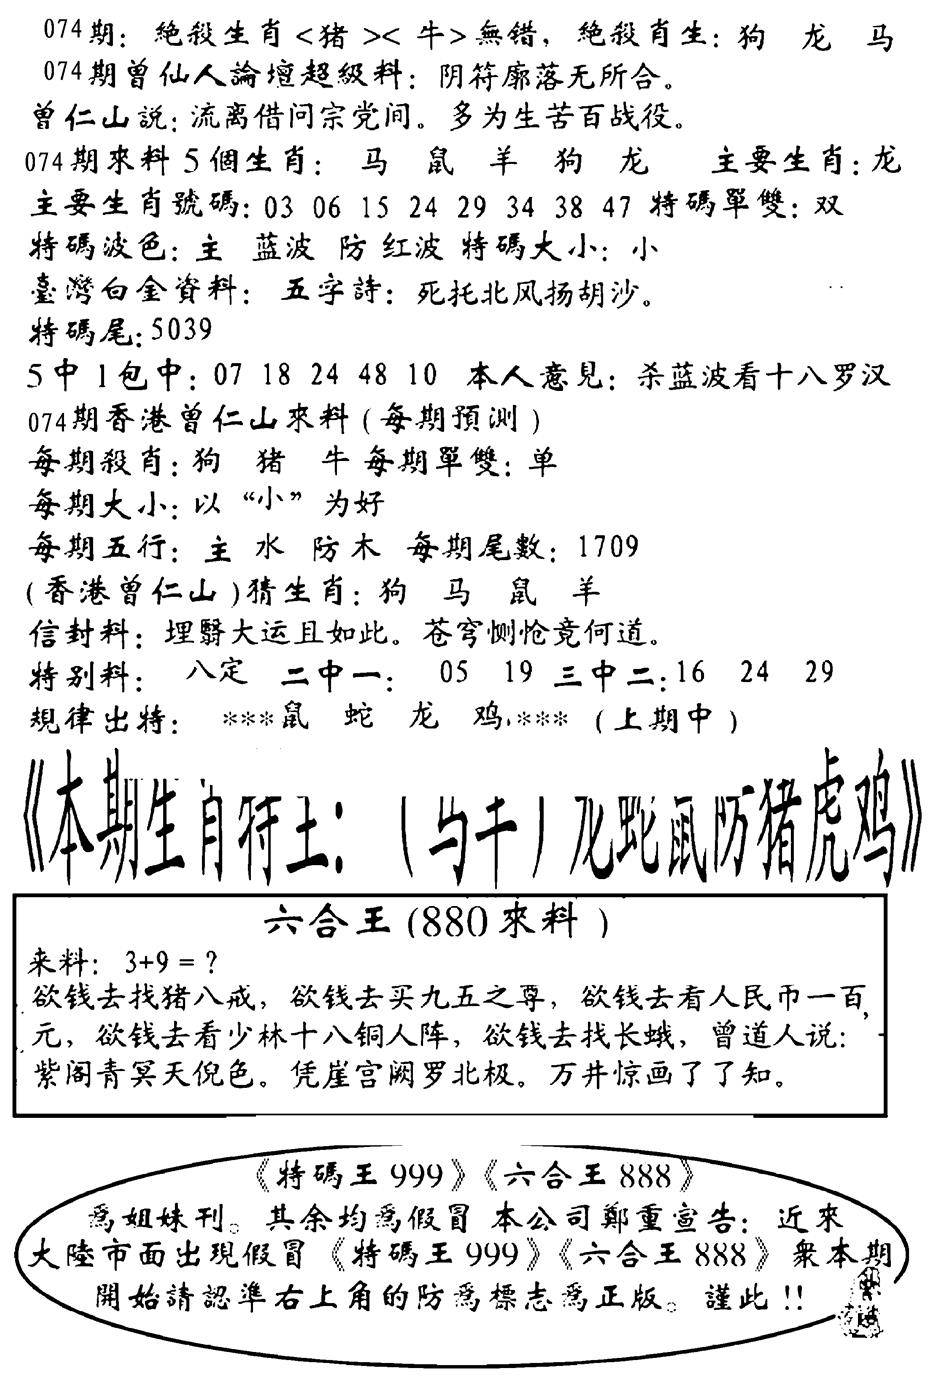 074期：絶殺生肖<猪><牛>無错，絶殺肖生：狗 龙 马
074期曾仙人論壇超級料：阴符廓落无所合。
曾仁山説：流离借问宗党间。多为生苦百战役。
074期來料5個生肖：马 鼠 羊 狗 龙 主要生肖：龙
主要生肖號碼：03 06 15 24 29 34 38 47 特碼單雙：双
特碼波色：主 蓝波 防 红波 特碼大小：小
臺灣白金資料：五字詩：死托北风扬胡沙。
特碼尾：5039
5中1包中：07 18 24 48 10 本人意見：杀蓝波看十八罗汉
074期香港曾仁山來料(每期預測)
每期殺肖：狗 猪 牛 每期單雙：单
每期大小：以“小”为好
每期五行：主 水 防木 每期尾數：1709
(香港曾仁山)猜生肖：狗 马 鼠 羊
信封料：埋翳大运且如此。苍穹恻怆竟何道。
特别料：八定 二中一：05 19 三中二：16 24 29
規律出特：***鼠 蛇 龙 鸡,***（上期中）
《本期生肖特主：（马牛）龙蛇鼠防猪虎鸡》
六合王(880來料)
来料：3+9=？
欲钱去找猪八戒，欲钱去买九五之尊，欲钱去看人民币一百
元，欲钱去看少林十八铜人阵，欲钱去找长蛾，曾道人说：
紫阁青冥天倪色。凭崖宫阙罗北极。万井惊画了了知。
《特碼王999》《六合王888》
爲姐妹刊。其余均爲假冒 本公司鄭重宣告：近來
大陸市面出現假冒《特碼王999》《六合王888》衆本期
開始請認準右上角的防爲標志爲正版。謹此!!